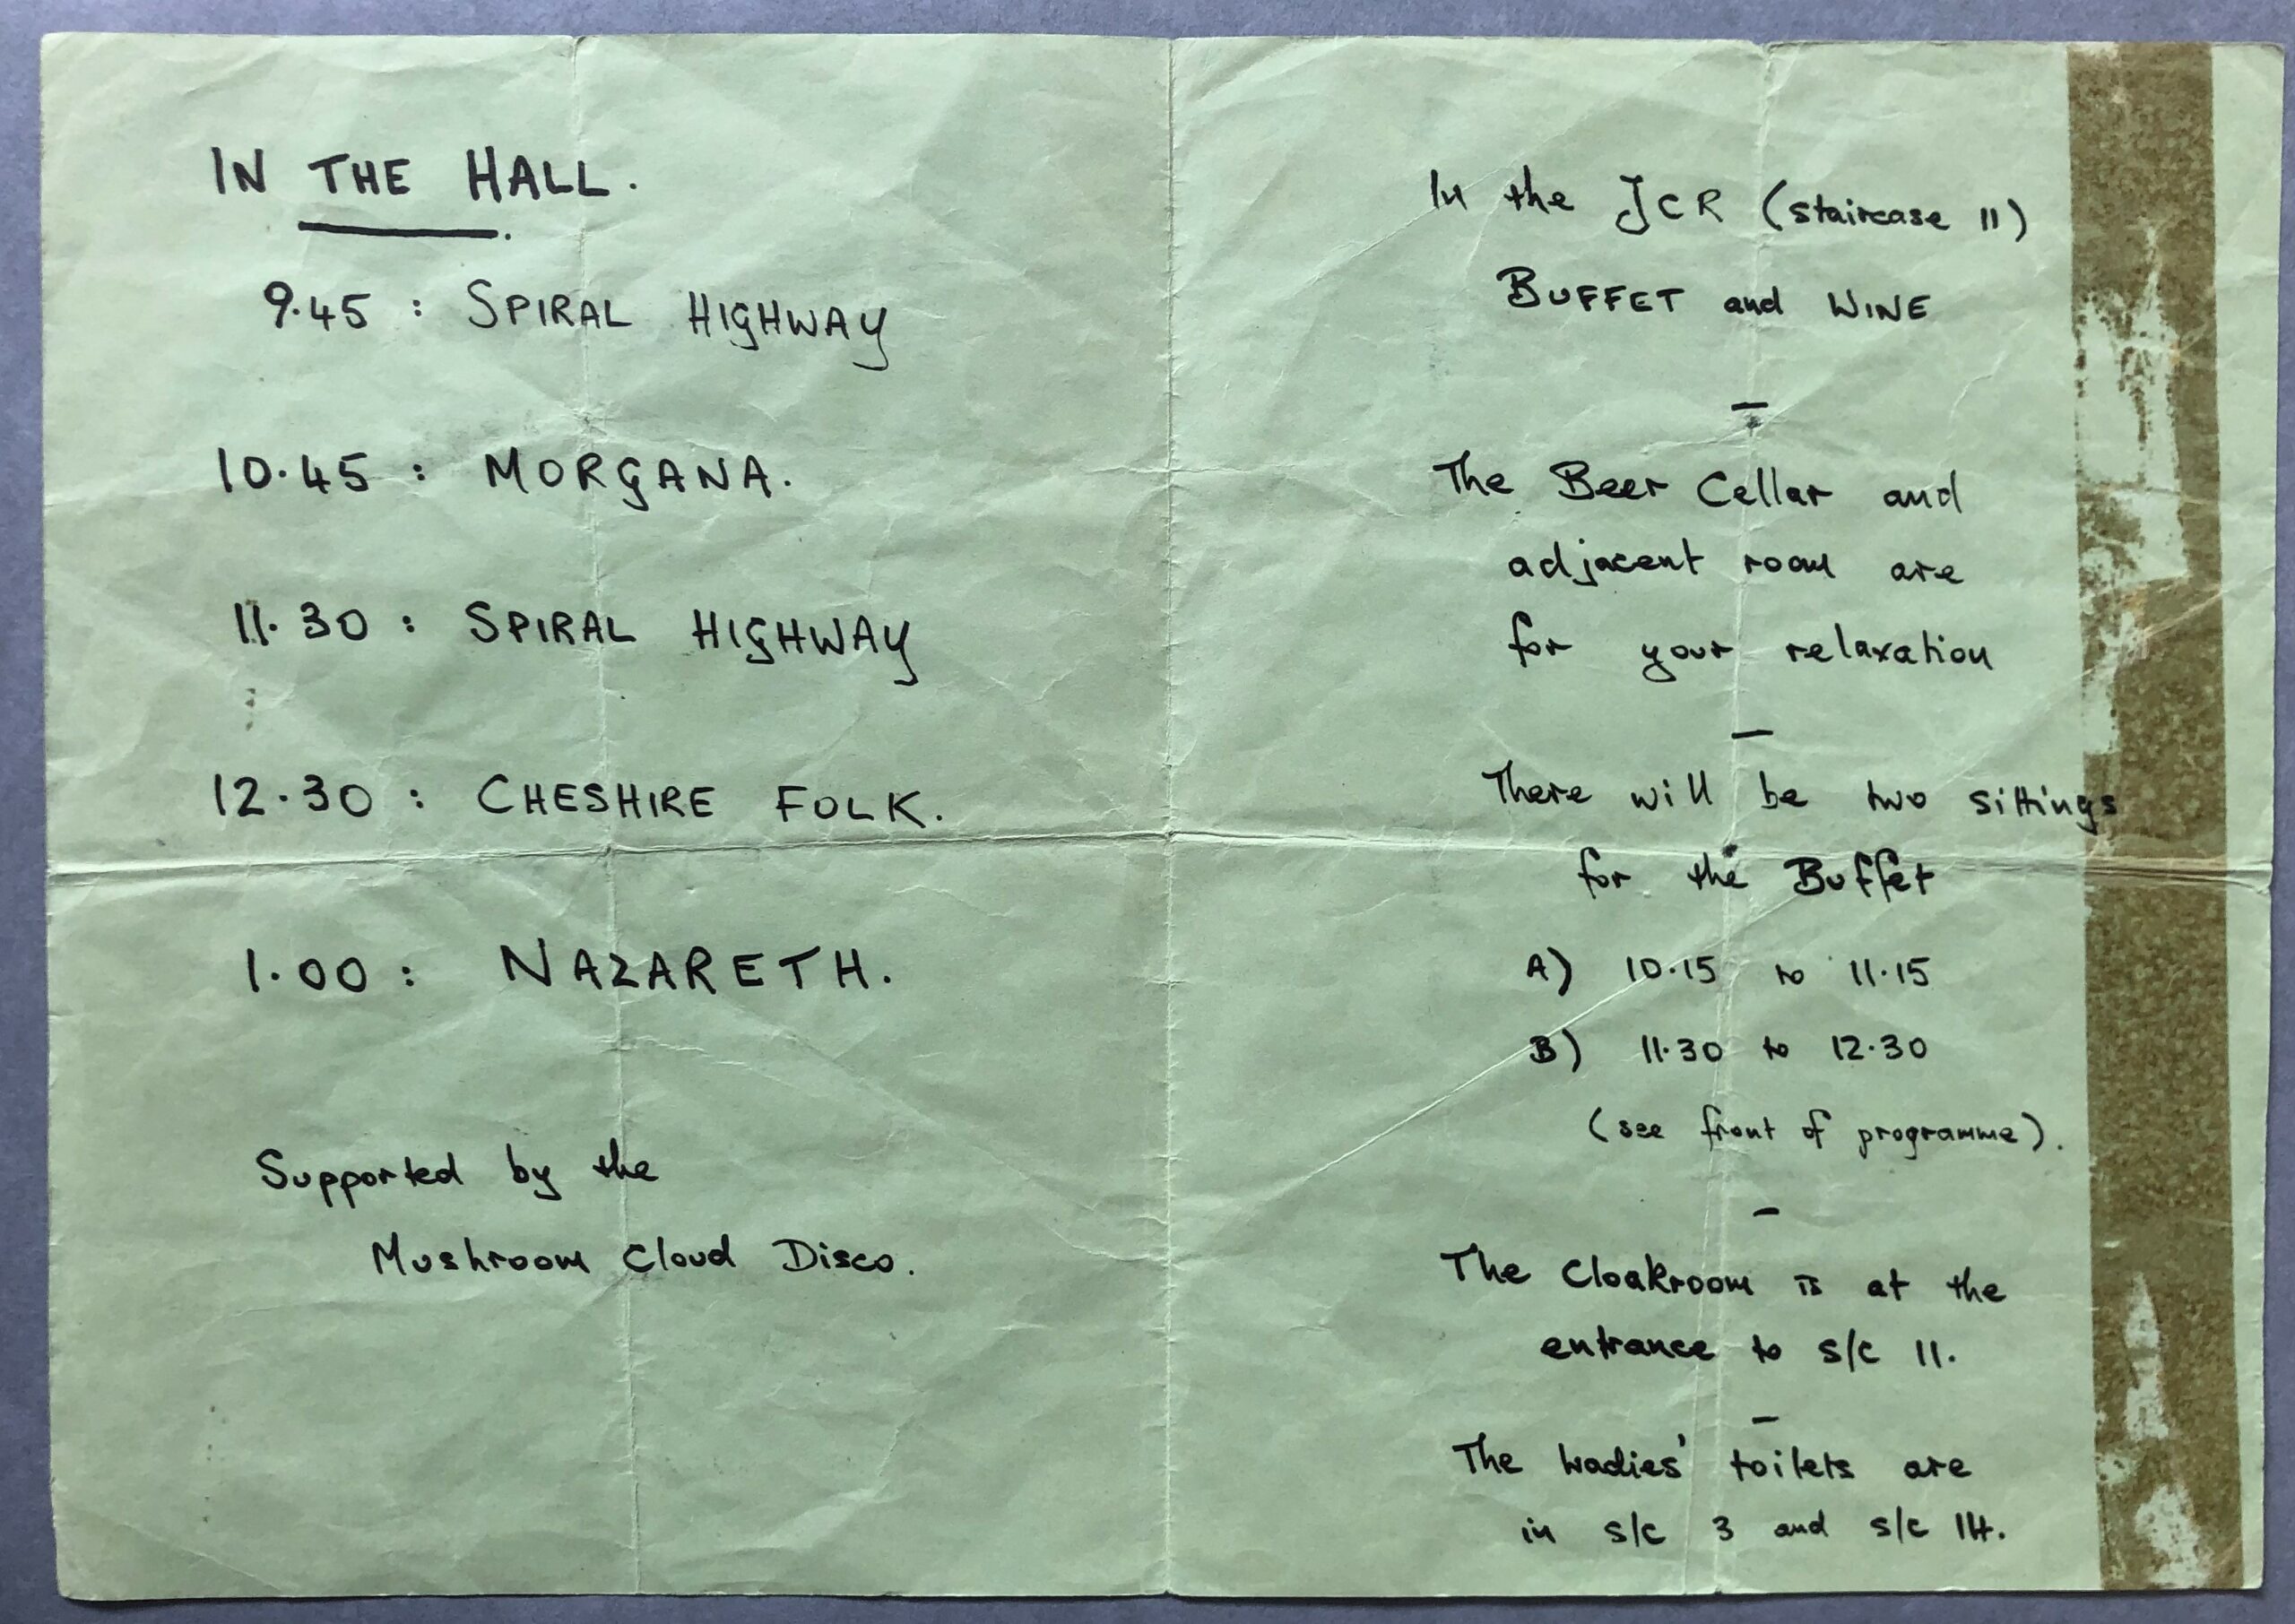 IN THE HALL.
9.45 : SPIRAL HIGHWAY
10.45 : MORGANA.
11.30 : SPIRAL HIGHWAY
12.30 : CHESHIRE FOLK.
1.00 : NAZARETH.
Supported by the
Mushroom Cloud Disco.
In the JCR (staircase 11)
BUFFET and WINE
—
The Beer Cellar and
adjacent room are
for your relaxation
—
There will be two sittings
for the Buffet
A) 10.15 to 11.15
B) 11.30 to 12.30
(see front of programme).
—
The Cloakroom is at the
entrance to s/c 11.
—
The Ladies' toilets are
in s/c 3 and s/c 14.